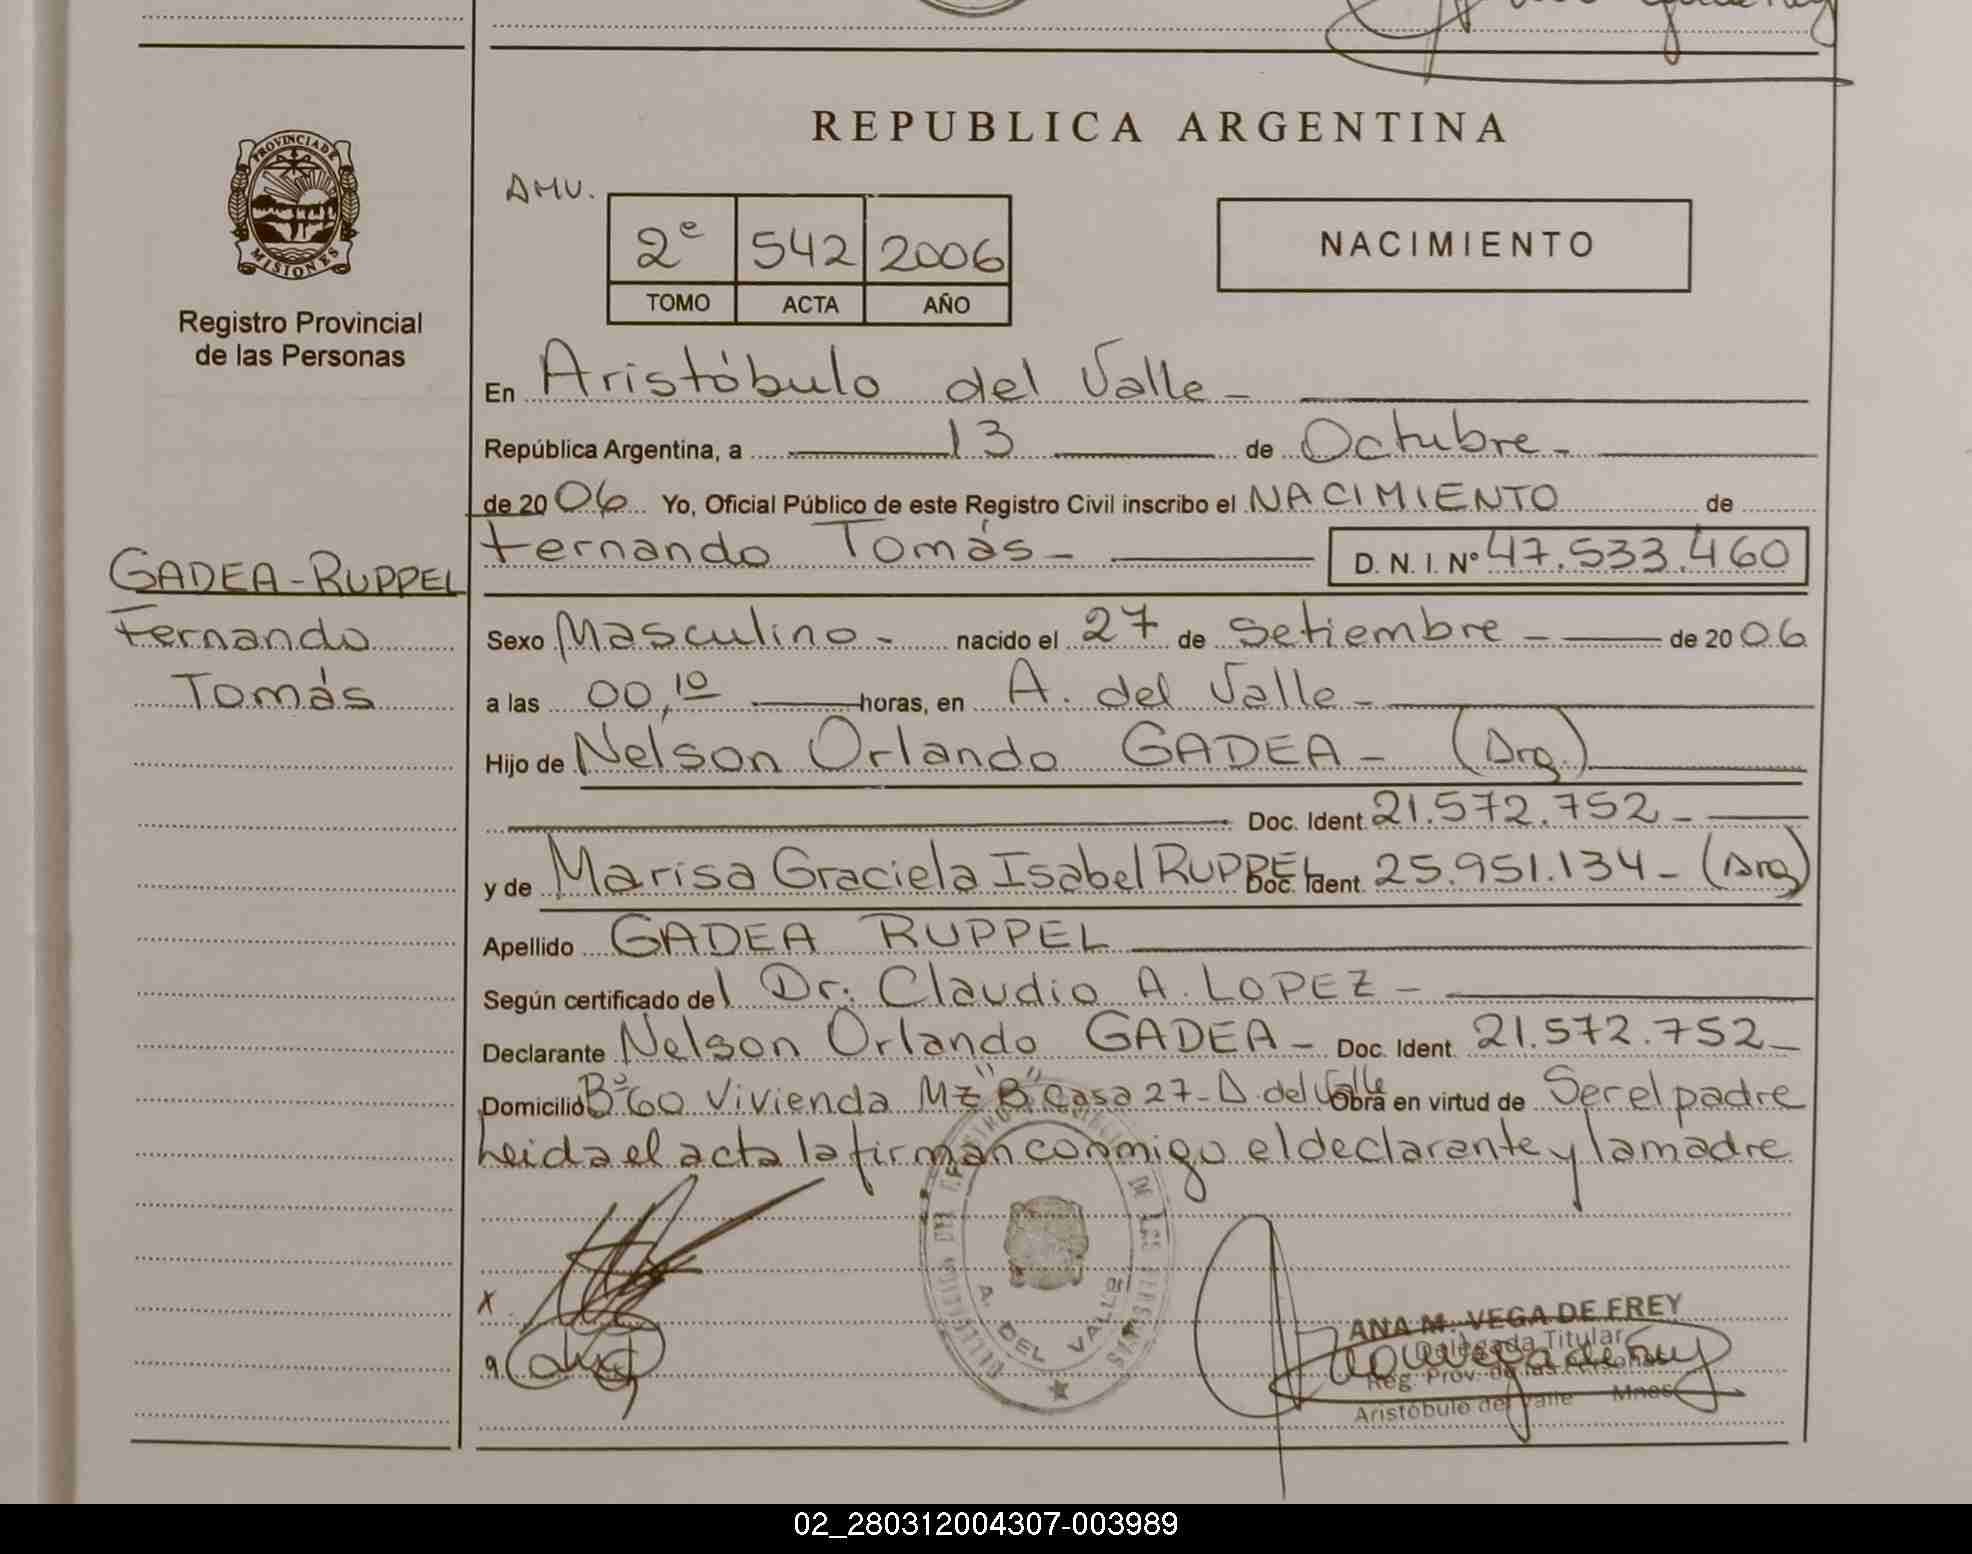 REPUBLICA ARGENTINA
PROVINCIA DE
MISIONES
Registro Provincial
de las Personas
AMV.
2º 542 2006
TOMO ACTA AÑO
NACIMIENTO
En Aristóbulo del Valle -
República Argentina, a 13 de Octubre -
de 2006 Yo, Oficial Público de este Registro Civil inscribo el NACIMIENTO de
Fernando Tomás - D. N. I. Nº 47.533.460
GADEA-RUPPEL
Fernando
Tomás
Sexo Masculino - nacido el 27 de Setiembre - de 2006
a las 00,10 horas, en A. del Valle -
Hijo de Nelson Orlando GADEA - (Arg.)
Doc. Ident. 21.572.752 -
y de Marisa Graciela Isabel RUPPEL Doc. Ident. 25.951.134 - (Arg)
Apellido GADEA RUPPEL
Según certificado del Dr: Claudio A. LOPEZ -
Declarante Nelson Orlando GADEA - Doc. Ident. 21.572.752 -
Domicilio Bº 60 Vivienda Mz "B" Casa 27 - A. del Valle Obra en virtud de Ser el padre
Leida el acta la firman conmigo el declarante y la madre
DE LAS PERSONAS
A. DEL VALLE
X
ANA M. VEGA DE FREY
Delegada Titular
Reg. Prov. de las Personas
Aristóbulo del Valle Mnes
02_280312004307-003989